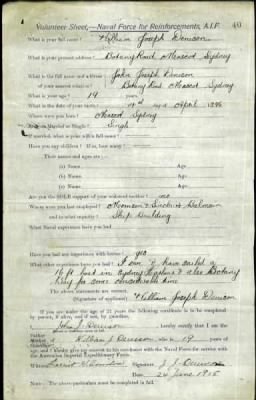 Volunteer Sheet,—Naval Force for Reinforcements, A.I.F. 40
What is your full name? William Joseph Denison
What is your present address? Botany Road Mascot Sydney
What is the full name and address John Joseph Denison
of your nearest relation? Botany Road Mascot Sydney
What is your age? 19 years.
What is the date of your birth? April 1896
Where were you born? Mascot Sydney
Are you Married or Single? Single
If married, what is your wife's full name?
Have you any children? If so, how many?
Their names and ages are:—
(a) Name Age
(b) Name Age
(c) Name Age
Are you the SOLE support of your widowed mother? no
Where were you last employed? Balmain
and in what capacity? Ship Building
What Naval experience have you had?
Have you had any experience with horses? yes
What other experience have you had? I have sailed a
16 ft boat in Sydney Harbour & also Botany
Bay for some considerable time
The above statements are correct.
(Signature of applicant) William Joseph Denison
If you are under the age of 21 years the following certificate is to be completed
by parent, if alive, and if not, by guardian.
I, John J. Denison hereby certify that I am the
Father
Mother of William J. Denison who is 19 years of
age, and I hereby give my consent to his enrolment with the Naval Force for service with the
Australian Imperial Expeditionary Force.
Witness Signature J. J. Denison
Date 24 June 1915
Note.—The above particulars must be completed in full.